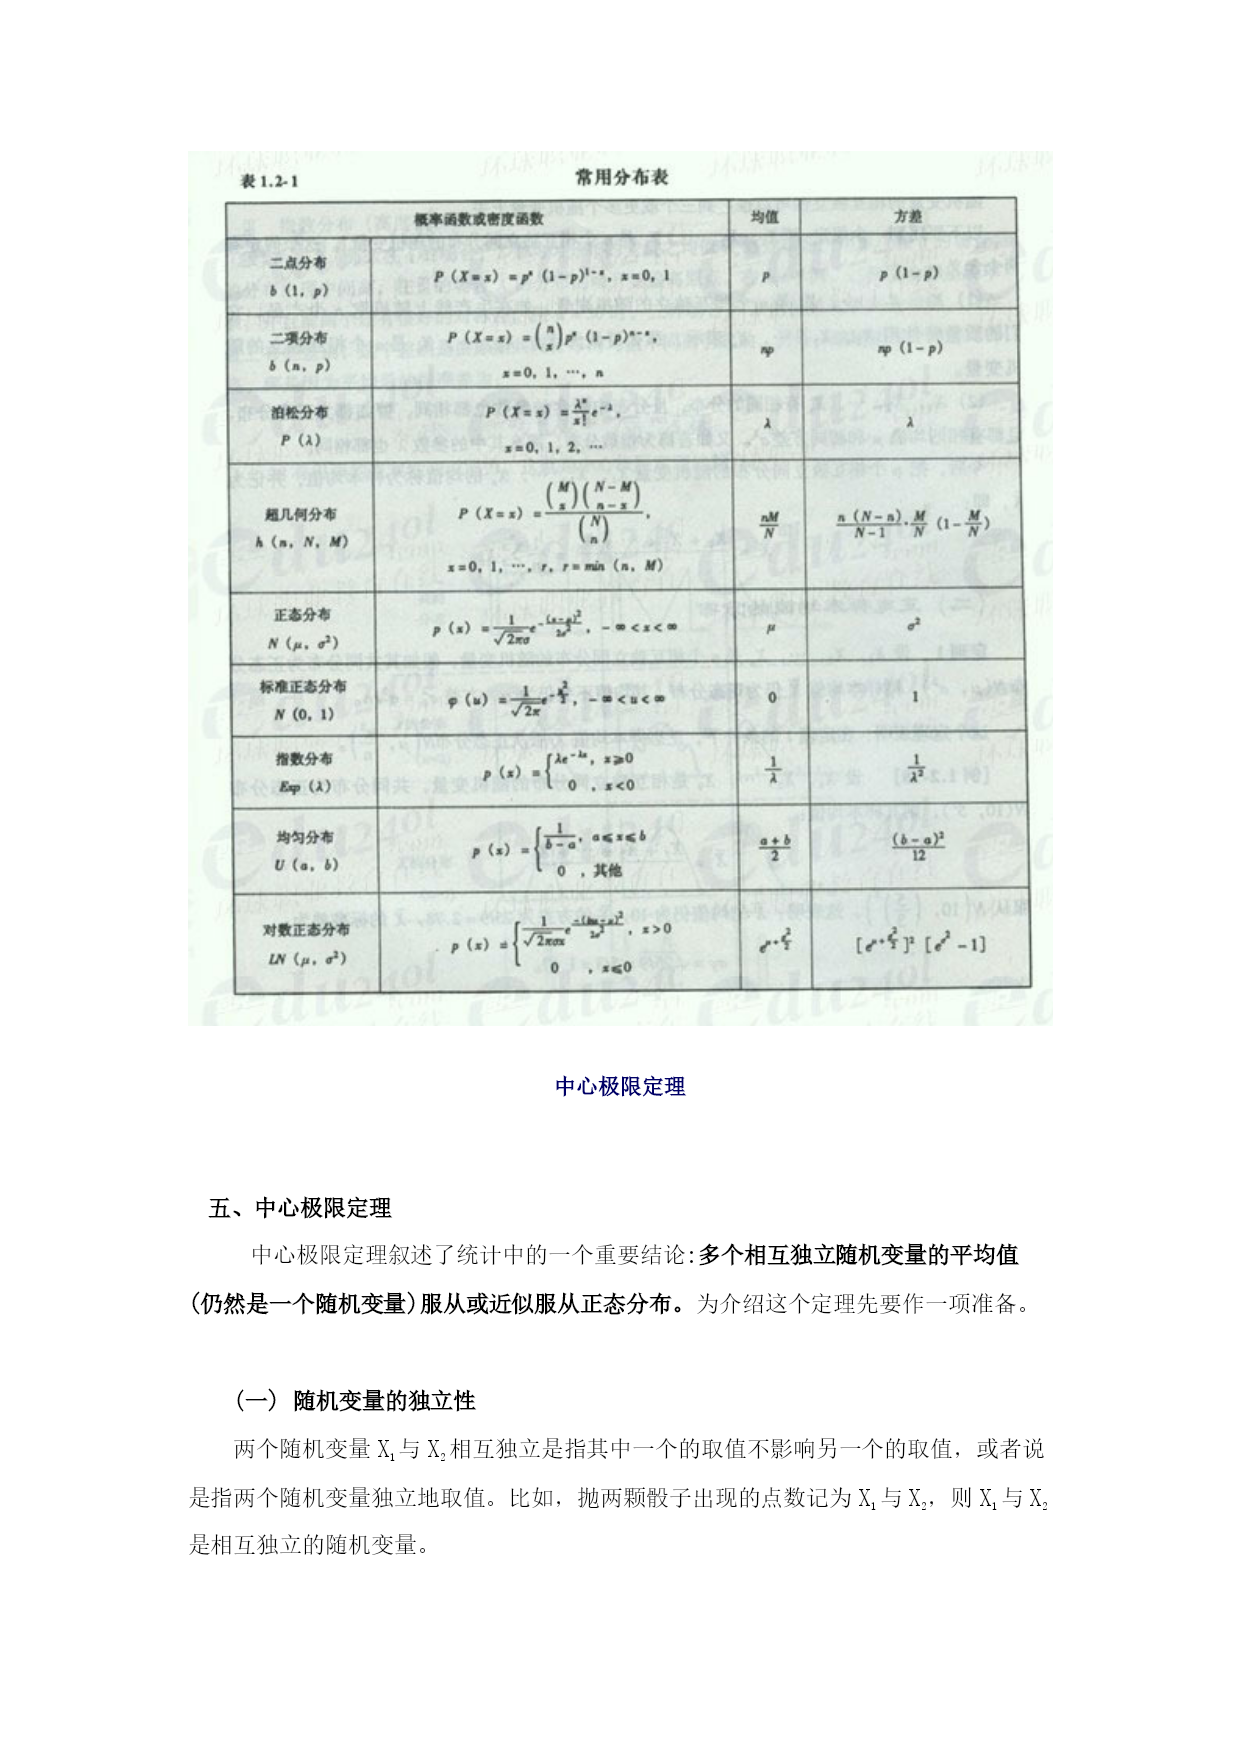 表1.2-1 常用分布表
概率函数或密度函数 均值 方差
二点分布 b (1, p) P (X=x) = pˣ (1-p)¹⁻ˣ, x=0, 1 p p (1-p)
二项分布 b (n, p) P (X=x) = (n x) pˣ (1-p)ⁿ⁻ˣ, x=0, 1, …, n np np (1-p)
泊松分布 P (λ) P (X=x) = λˣ/x! e^(-λ), x=0, 1, 2, … λ λ
超几何分布 h (n, N, M) P (X=x) = (M x)(N-M n-x)/(N n), x=0, 1, …, r, r=min (n, M) nM/N n (N-n)/(N-1)·M/N (1-M/N)
正态分布 N (μ, σ²) p (x) = 1/(√2πσ) e^(-(x-μ)²/2σ²), -∞<x<∞ μ σ²
标准正态分布 N (0, 1) φ (u) = 1/√2π e^(-u²/2), -∞<u<∞ 0 1
指数分布 Exp (λ) p (x) = { λe^(-λx), x⩾0 0 , x<0 1/λ 1/λ²
均匀分布 U (a, b) p (x) = { 1/(b-a), a⩽x⩽b 0 , 其他 (a+b)/2 (b-a)²/12
对数正态分布 LN (μ, σ²) p (x) = { 1/(√2πσx) e^(-(lnx-μ)²/2σ²), x>0 0 , x⩽0 e^(μ+σ²/2) [e^(μ+σ²/2)]² [e^(σ²) -1]
中心极限定理
五、中心极限定理
中心极限定理叙述了统计中的一个重要结论:多个相互独立随机变量的平均值
(仍然是一个随机变量)服从或近似服从正态分布。为介绍这个定理先要作一项准备。
(一) 随机变量的独立性
两个随机变量 X₁与 X₂相互独立是指其中一个的取值不影响另一个的取值，或者说
是指两个随机变量独立地取值。比如，抛两颗骰子出现的点数记为 X₁与 X₂，则 X₁与 X₂
是相互独立的随机变量。